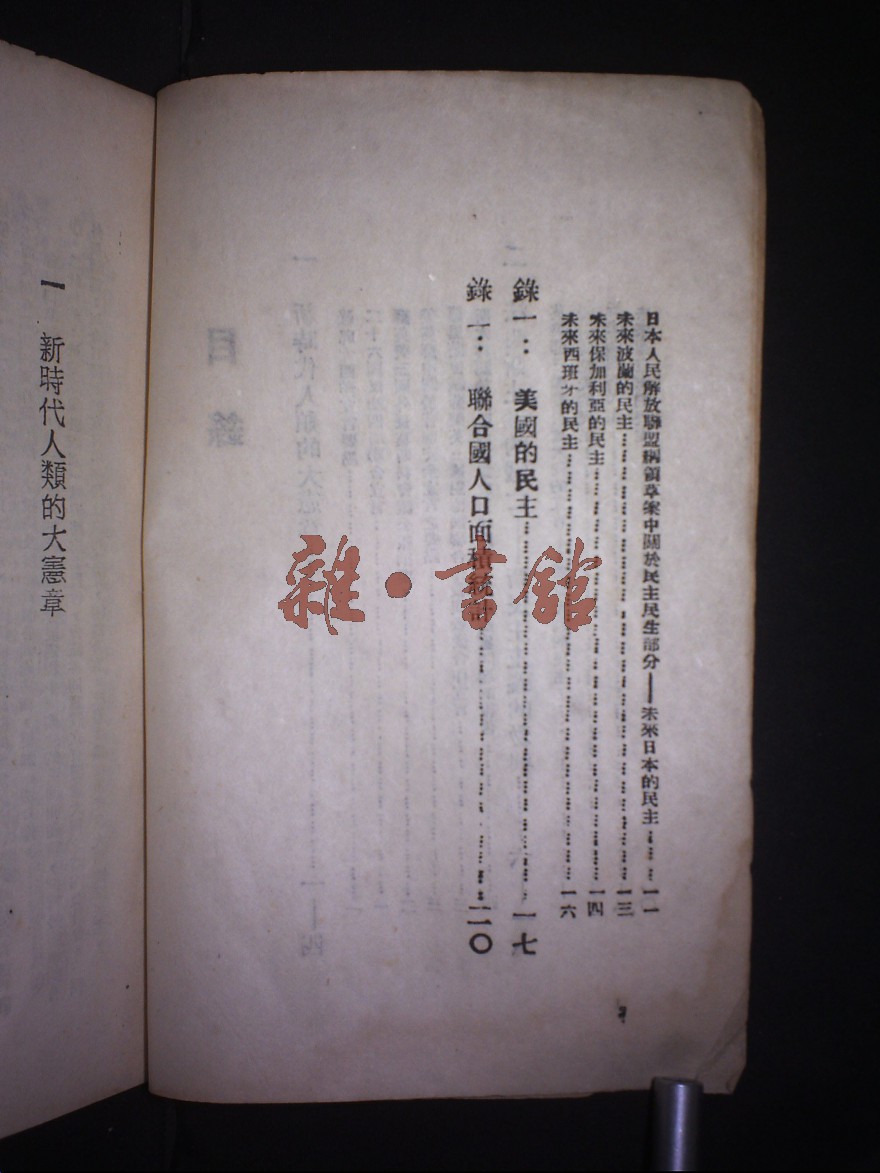 日本人民解放聯盟綱領草案中關於民主民生部分——未來日本的民主……一一
未來波蘭的民主……一三
未來保加利亞的民主……一四
未來西班牙的民主……一六
錄一：美國的民主……一七
錄二：聯合國人口面積統計……二〇
一 新時代人類的大憲章
雜·書館